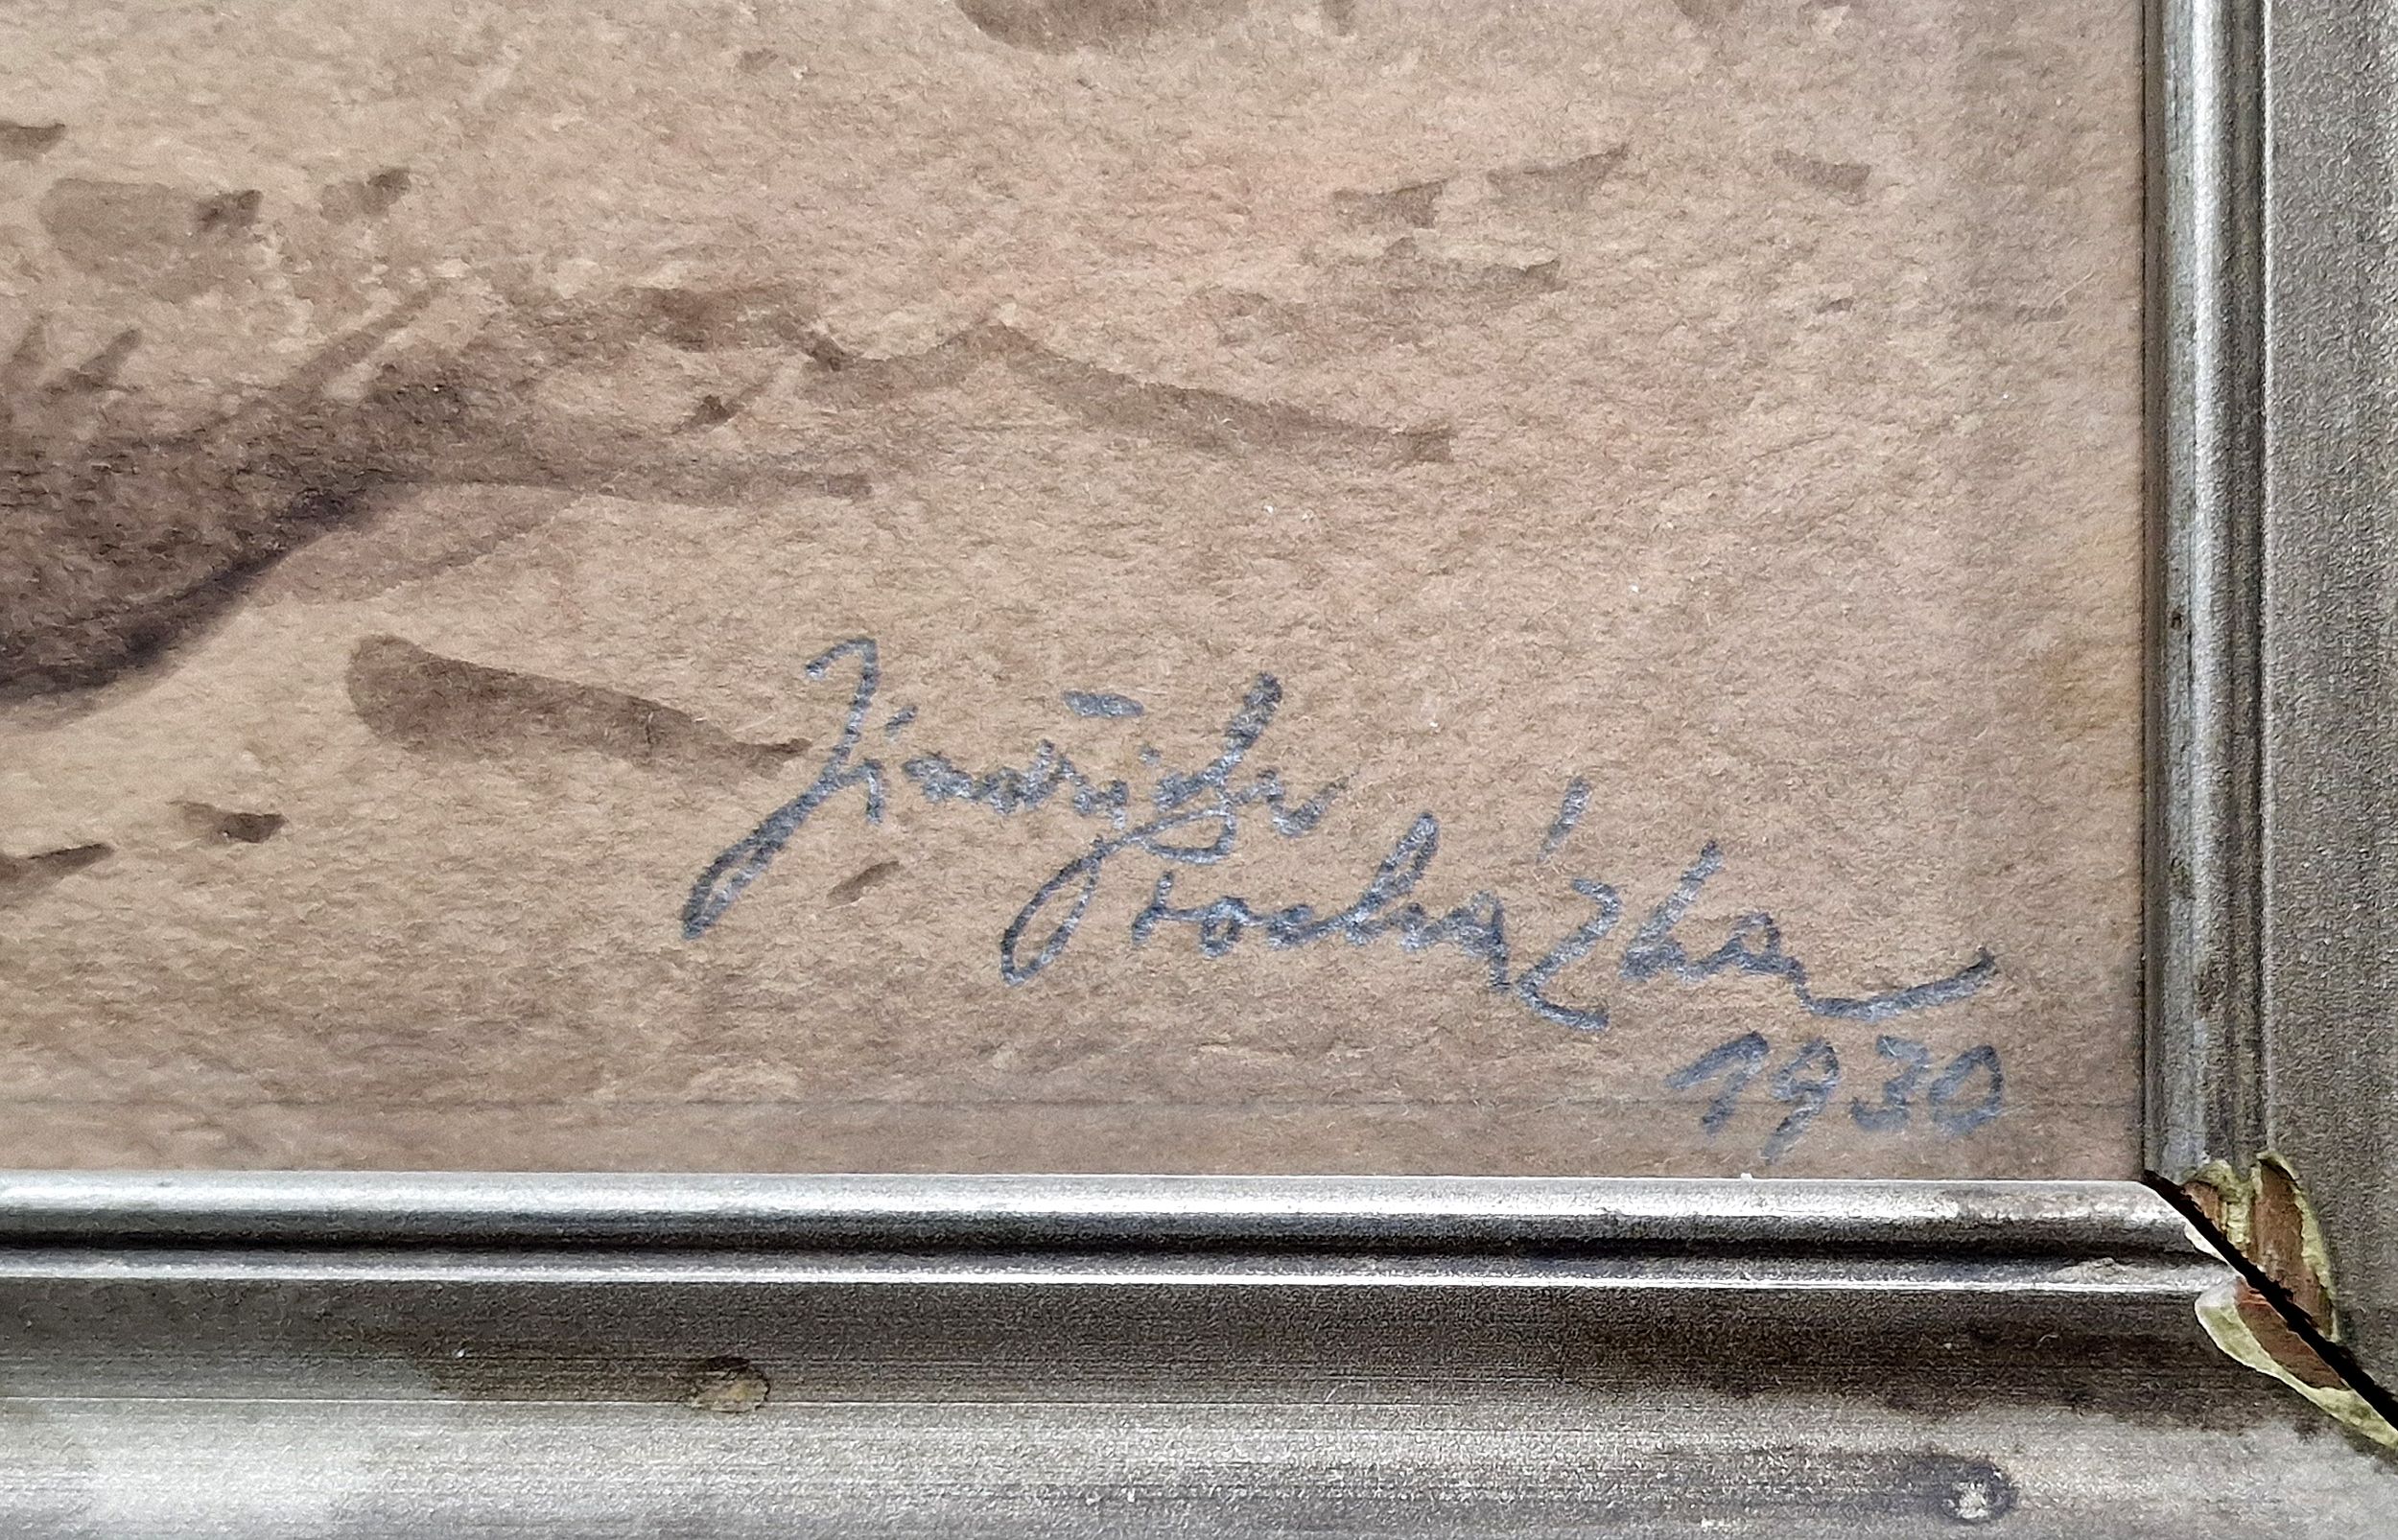 Jindřich
Procházka
1930